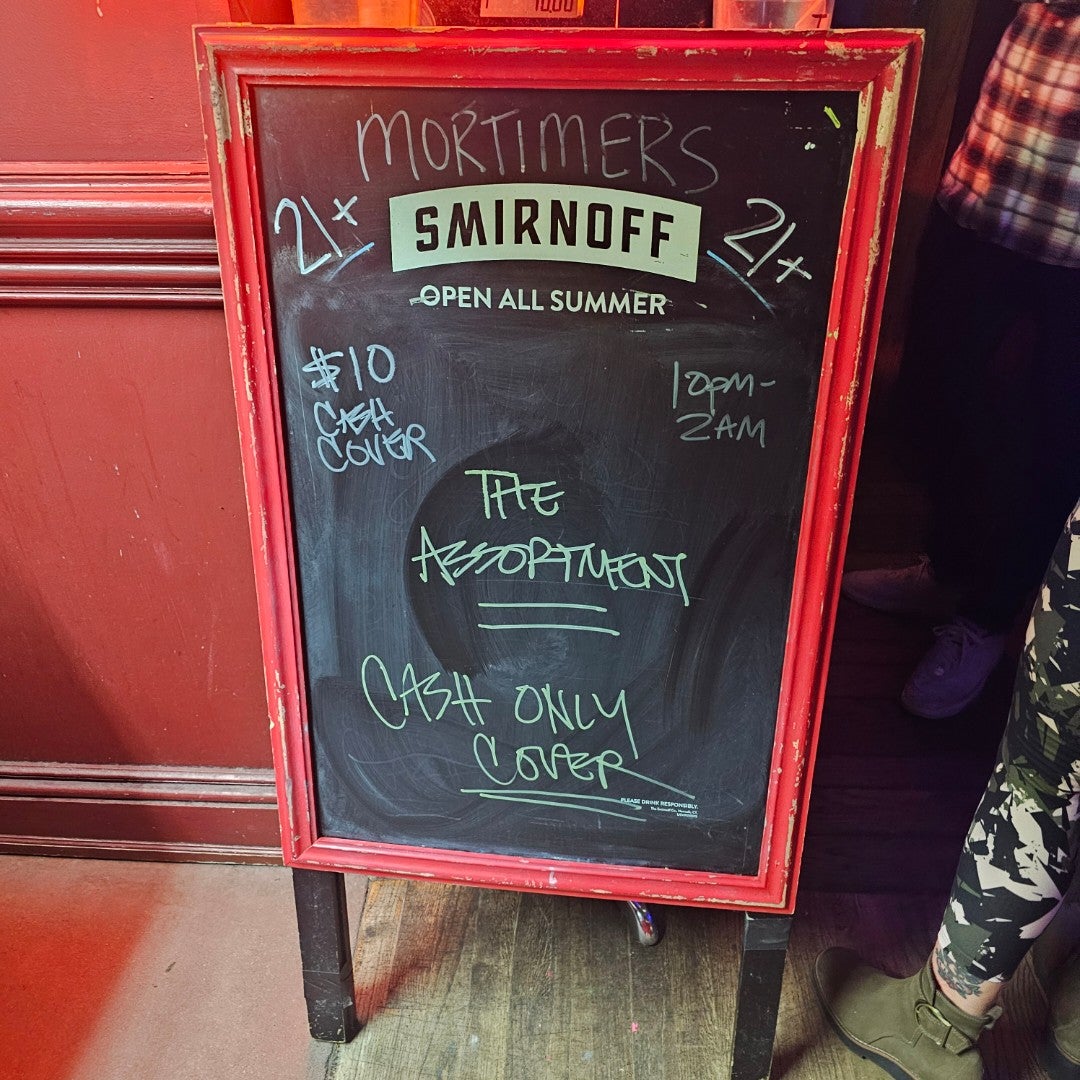 10.00
MORTIMERS
21+
SMIRNOFF
21+
OPEN ALL SUMMER
$10
CASH
COVER
10pm-
2AM
THE
ASSORTMENT
CASH ONLY
COVER
PLEASE DRINK RESPONSIBLY.